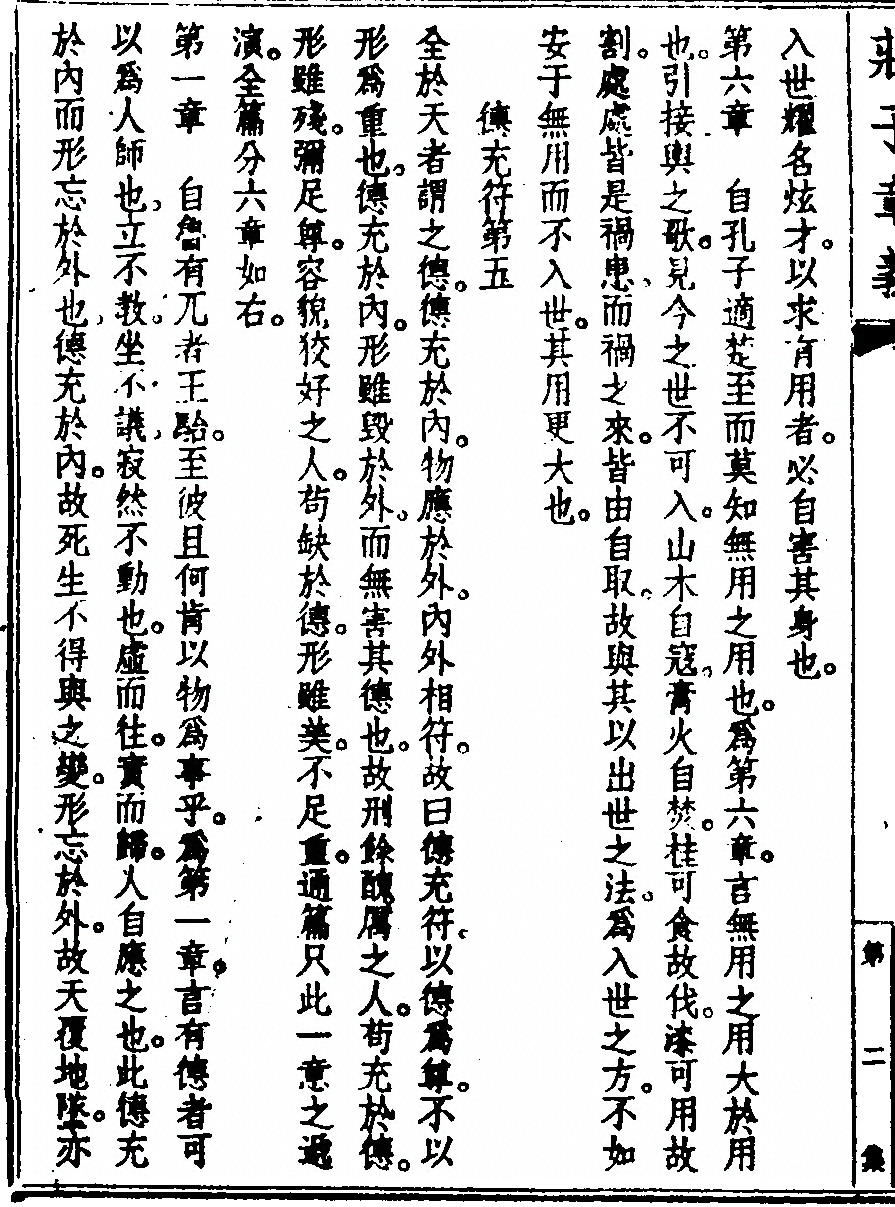 莊子章義
第二集
入世耀名炫才。以求有用者。必自害其身也。
第六章　自孔子適楚至而莫知無用之用也。爲第六章。言無用之用大於用
也。引接輿之歌。見今之世不可入。山木自寇。膏火自焚。桂可食故伐。漆可用故
割。處處皆是禍患、而禍之來。皆由自取。故與其以出世之法。爲入世之方。不如
安于無用而不入世。其用更大也。
德充符第五
全於天者謂之德。德充於內。物應於外。內外相符。故曰德充符。以德爲尊。不以
形爲重也。德充於內。形雖毀於外。而無害其德也。故刑餘醜厲之人。苟充於德。
形雖殘。彌足尊。容貌狡好之人。苟缺於德。形雖美。不足重。通篇只此一意之遞
演。全篇分六章如右。
第一章　自魯有兀者王駘。至彼且何肯以物爲事乎。爲第一章。言有德者可
以爲人師也、立不教。坐不議、寂然不動也。虛而往。實而歸。人自應之也。此德充
於內而形忘於外也、德充於內。故死生不得與之變。形忘於外。故天覆地墜。亦